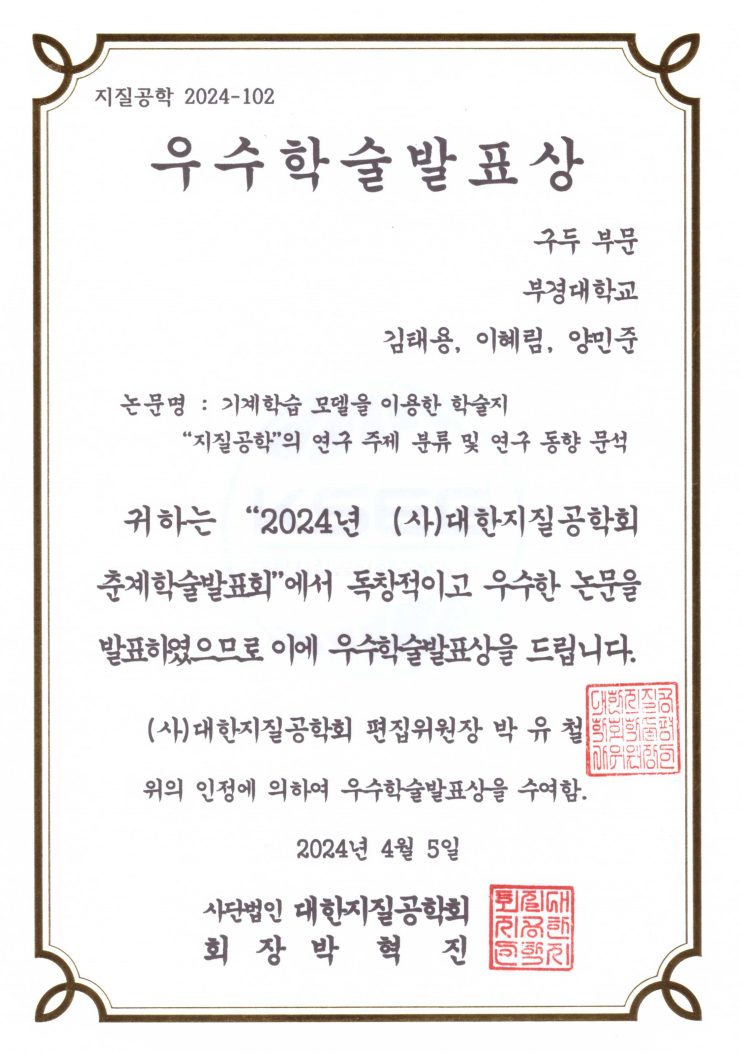 지질공학 2024-102
우수학술발표상
구두 부문
부경대학교
김태용, 이혜림, 양민준
논문명 : 기계학습 모델을 이용한 학술지
“지질공학”의 연구 주제 분류 및 연구 동향 분석
귀하는 “2024년 (사)대한지질공학회
춘계학술발표회”에서 독창적이고 우수한 논문을
발표하였으므로 이에 우수학술발표상을 드립니다.
(사)대한지질공학회 편집위원장 박 유 철
위의 인정에 의하여 우수학술발표상을 수여함.
2024년 4월 5일
사단법인 대한지질공학회
회 장 박 혁 진